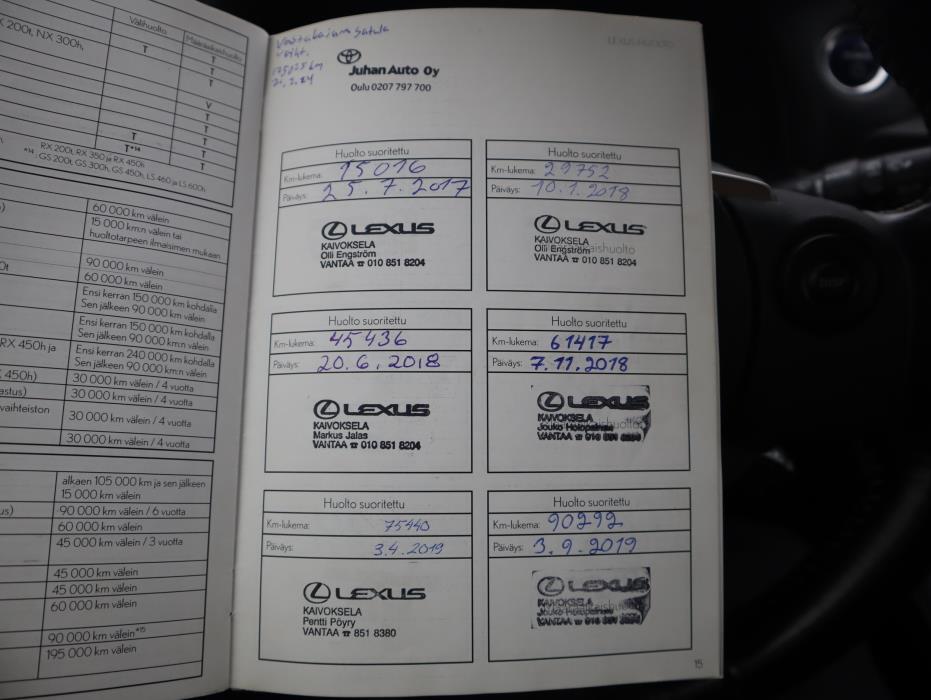 Välihuolto
Määräaikaishuolto
X 200t, NX 300h,
T
T
T
T
V
T
T
T
T*¹⁴
T
T
RX 200t, RX 350 ja RX 450h
*¹⁴: GS 200t, GS 300h, GS 450h, LS 460 ja LS 600h
60 000 km välein
15 000 km:n välein tai
huoltotarpeen ilmaisimen mukaan
90 000 km välein
60 000 km välein
Ensi kerran 150 000 km kohdalla
Sen jälkeen 90 000 km välein
Ensi kerran 150 000 km kohdalla
Sen jälkeen 90 000 km:n välein
RX 450h ja
Ensi kerran 240 000 km kohdalla
Sen jälkeen 90 000 km:n välein
450h)
30 000 km välein / 4 vuotta
astus)
30 000 km välein / 4 vuotta
vaihteiston
30 000 km välein / 4 vuotta
30 000 km välein / 4 vuotta
alkaen 105 000 km ja sen jälkeen
15 000 km välein
us)
90 000 km välein / 6 vuotta
60 000 km välein
45 000 km välein / 3 vuotta
45 000 km välein
45 000 km välein
60 000 km välein
90 000 km välein*¹⁵
195 000 km välein
LEXUS HUOLTO
Juhan Auto Oy
Oulu 0207 797 700
Huolto suoritettu
Km-lukema: 15016
Päiväys: 25.7.2017
LEXUS
KAIVOKSELA
Olli Engström
VANTAA ☎ 010 851 8204
Huolto suoritettu
Km-lukema: 29752
Päiväys: 10.1.2018
LEXUS
KAIVOKSELA
Olli Engström
VANTAA ☎ 010 851 8204
Huolto suoritettu
Km-lukema: 45436
Päiväys: 20.6.2018
LEXUS
KAIVOKSELA
Markus Jalas
VANTAA ☎ 010 851 8204
Huolto suoritettu
Km-lukema: 61417
Päiväys: 7.11.2018
LEXUS
KAIVOKSELA
Jouko Holopainen
VANTAA ☎ 010 851
Huolto suoritettu
Km-lukema: 75440
Päiväys: 3.4.2019
LEXUS
KAIVOKSELA
Pentti Pöyry
VANTAA ☎ 851 8380
Huolto suoritettu
Km-lukema: 90292
Päiväys: 3.9.2019
LEXUS
KAIVOKSELA
Jouko Holopainen
VANTAA ☎ 010 851
15